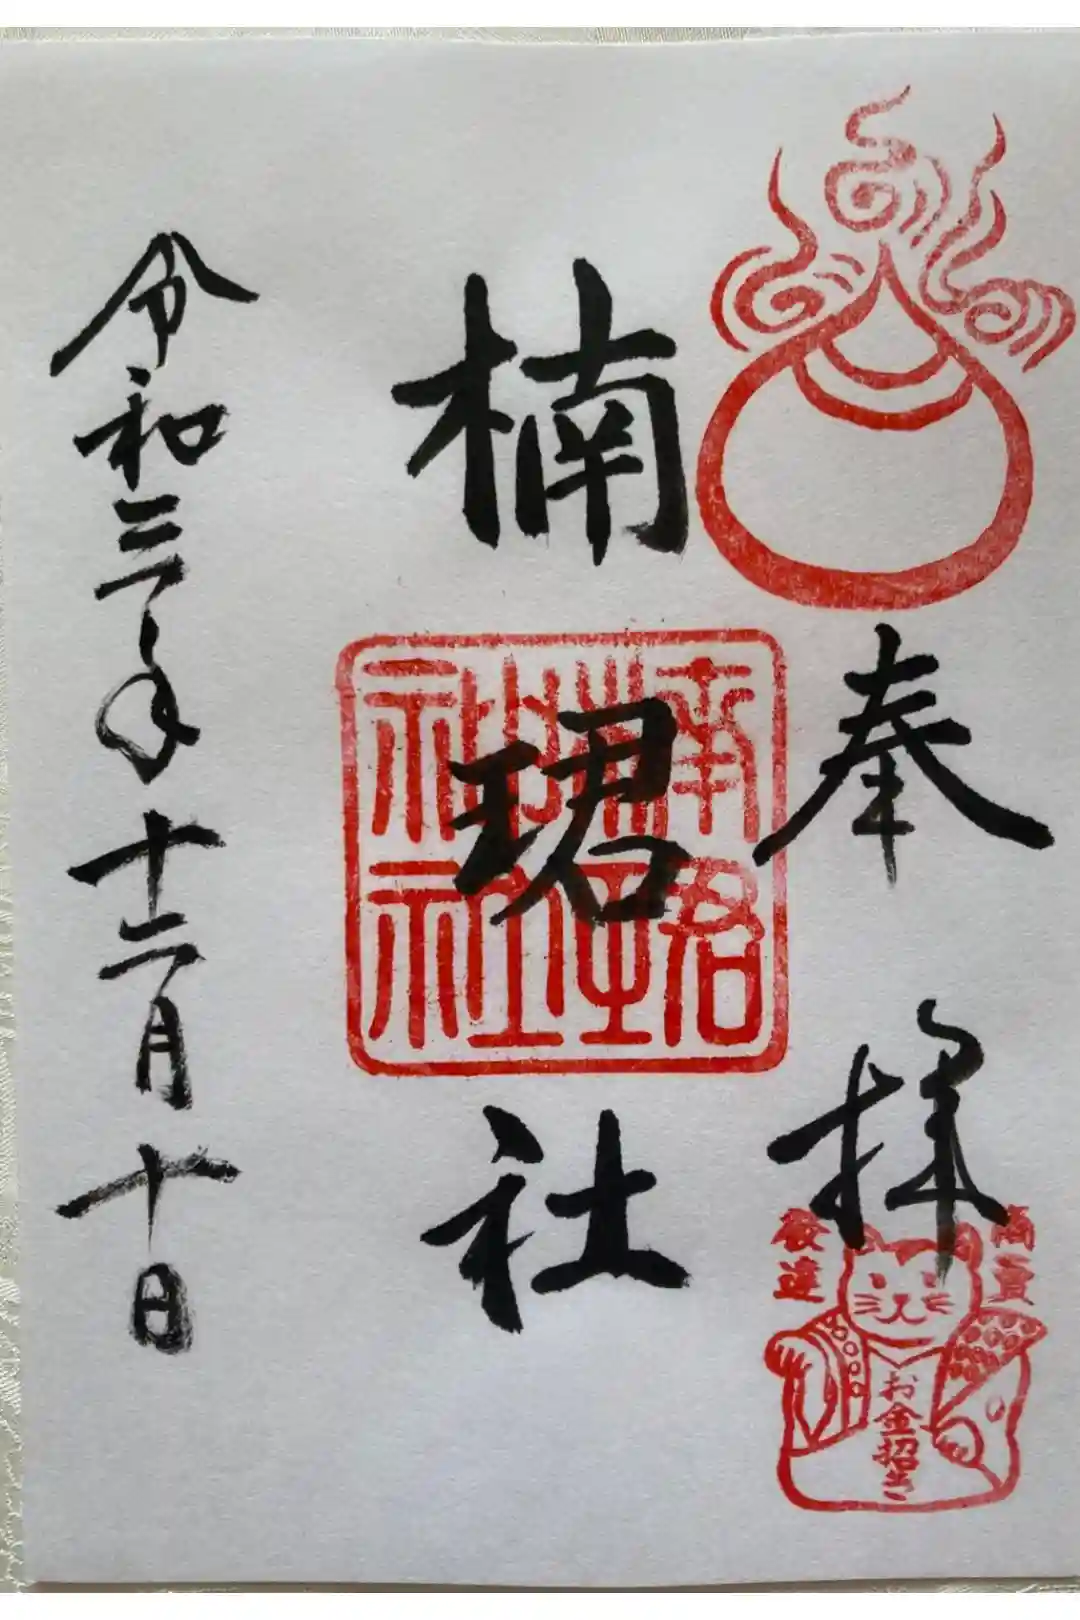 奉拝
楠珺社
楠珺
神社
令和三年十二月十日
商賣
發達
お金招き